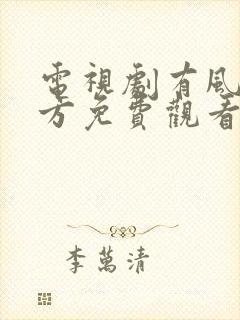 電視劇有風
方免費觀看
李萬清